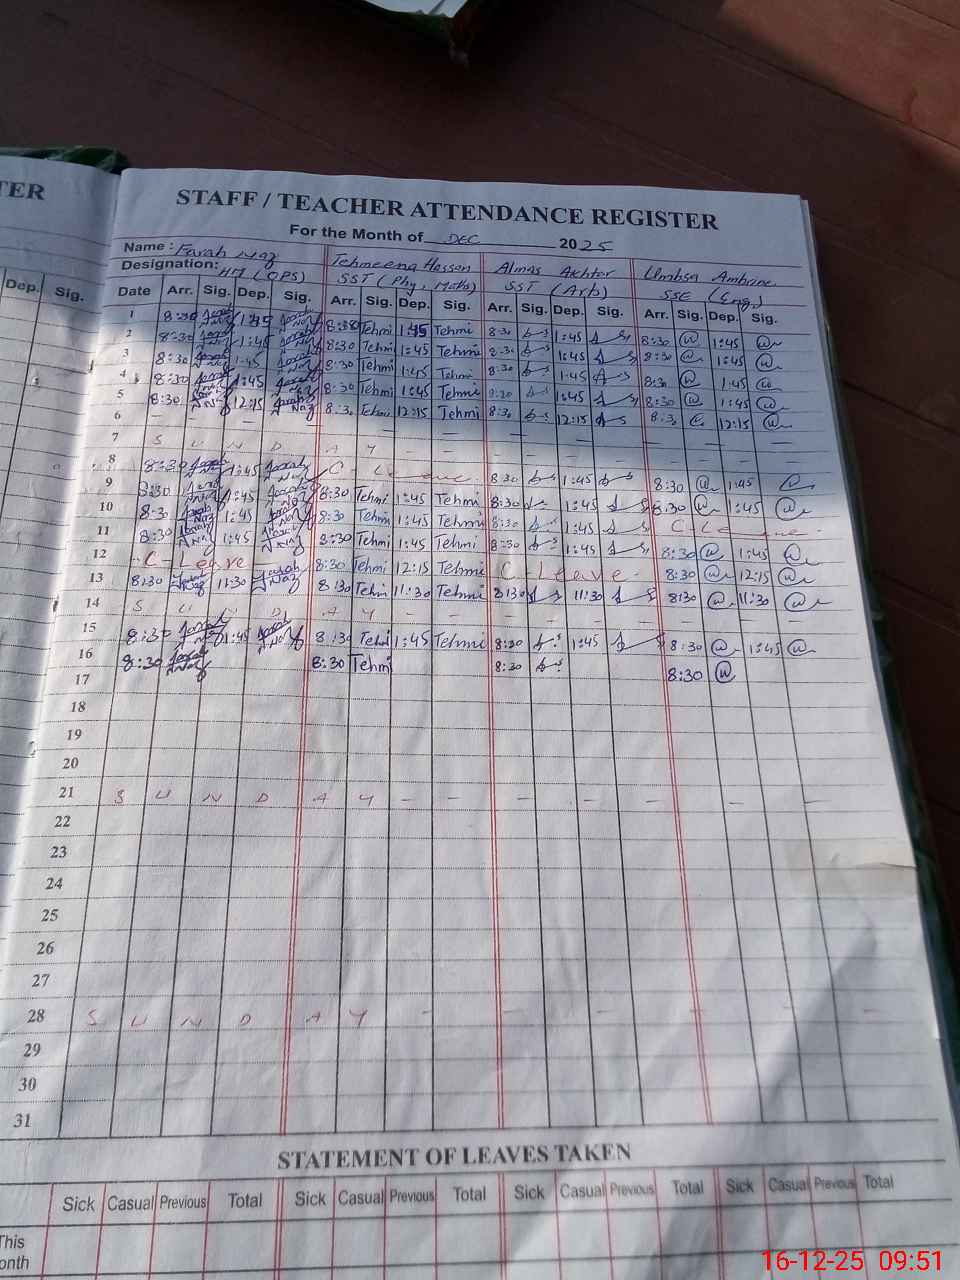 TER
STAFF / TEACHER ATTENDANCE REGISTER
For the Month of DEC 2025
Name : Farah Naz Tehmeena Hassan Almas Akhtar Umbsa Ambrine
Designation: HM (OPS) SST (Phy, Maths) SST (Arb) SSE (Eng)
Dep. Sig. Date Arr. Sig. Dep. Sig. Arr. Sig. Dep. Sig. Arr. Sig. Dep. Sig. Arr. Sig. Dep. Sig.
1 8:30 Farah Naz 1:45 Farah Naz 8:30 Tehmi 1:45 Tehmi 8:30 1:45 8:30 1:45
2 8:30 Farah Naz 1:45 Farah Naz 8:30 Tehmi 1:45 Tehmi 8:30 1:45 8:30 1:45
3 8:30 Farah Naz 1:45 Farah Naz 8:30 Tehmi 1:45 Tehmi 8:30 1:45 8:30 1:45
4 8:30 Farah Naz 1:45 Farah Naz 8:30 Tehmi 1:45 Tehmi 8:30 1:45 8:30 1:45
5 8:30 Farah Naz 12:15 Farah Naz 8:30 Tehmi 12:15 Tehmi 8:30 12:15 8:30 12:15
6 - - - - - - - -
7 S U N D A Y - - - - - -
8 8:30 Farah Naz 1:45 Farah Naz C - Leave 8:30 1:45 8:30 1:45
9 8:30 Farah Naz 1:45 Farah Naz 8:30 Tehmi 1:45 Tehmi 8:30 1:45 8:30 1:45
10 8:30 Farah Naz 1:45 Farah Naz 8:30 Tehmi 1:45 Tehmi 8:30 1:45 C - Leave
11 8:30 Farah Naz 1:45 Farah Naz 8:30 Tehmi 1:45 Tehmi 8:30 1:45 8:30 1:45
12 C - Leave 8:30 Tehmi 12:15 Tehmi C - Leave 8:30 12:15
13 8:30 Farah Naz 11:30 Farah Naz 8:30 Tehmi 11:30 Tehmi 8:30 11:30 8:30 11:30
14 S U N D A Y - - - - - -
15 8:30 Farah Naz 1:45 Farah Naz 8:30 Tehmi 1:45 Tehmi 8:30 1:45 8:30 1:45
16 8:30 Farah Naz 8:30 Tehmi 8:30 8:30
17
18
19
20
21 S U N D A Y - - - - - - - -
22
23
24
25
26
27
28 S U N D A Y - - - - - -
29
30
31
STATEMENT OF LEAVES TAKEN
Sick Casual Previous Total Sick Casual Previous Total Sick Casual Previous Total Sick Casual Previous Total
This
onth
16-12-25 09:51